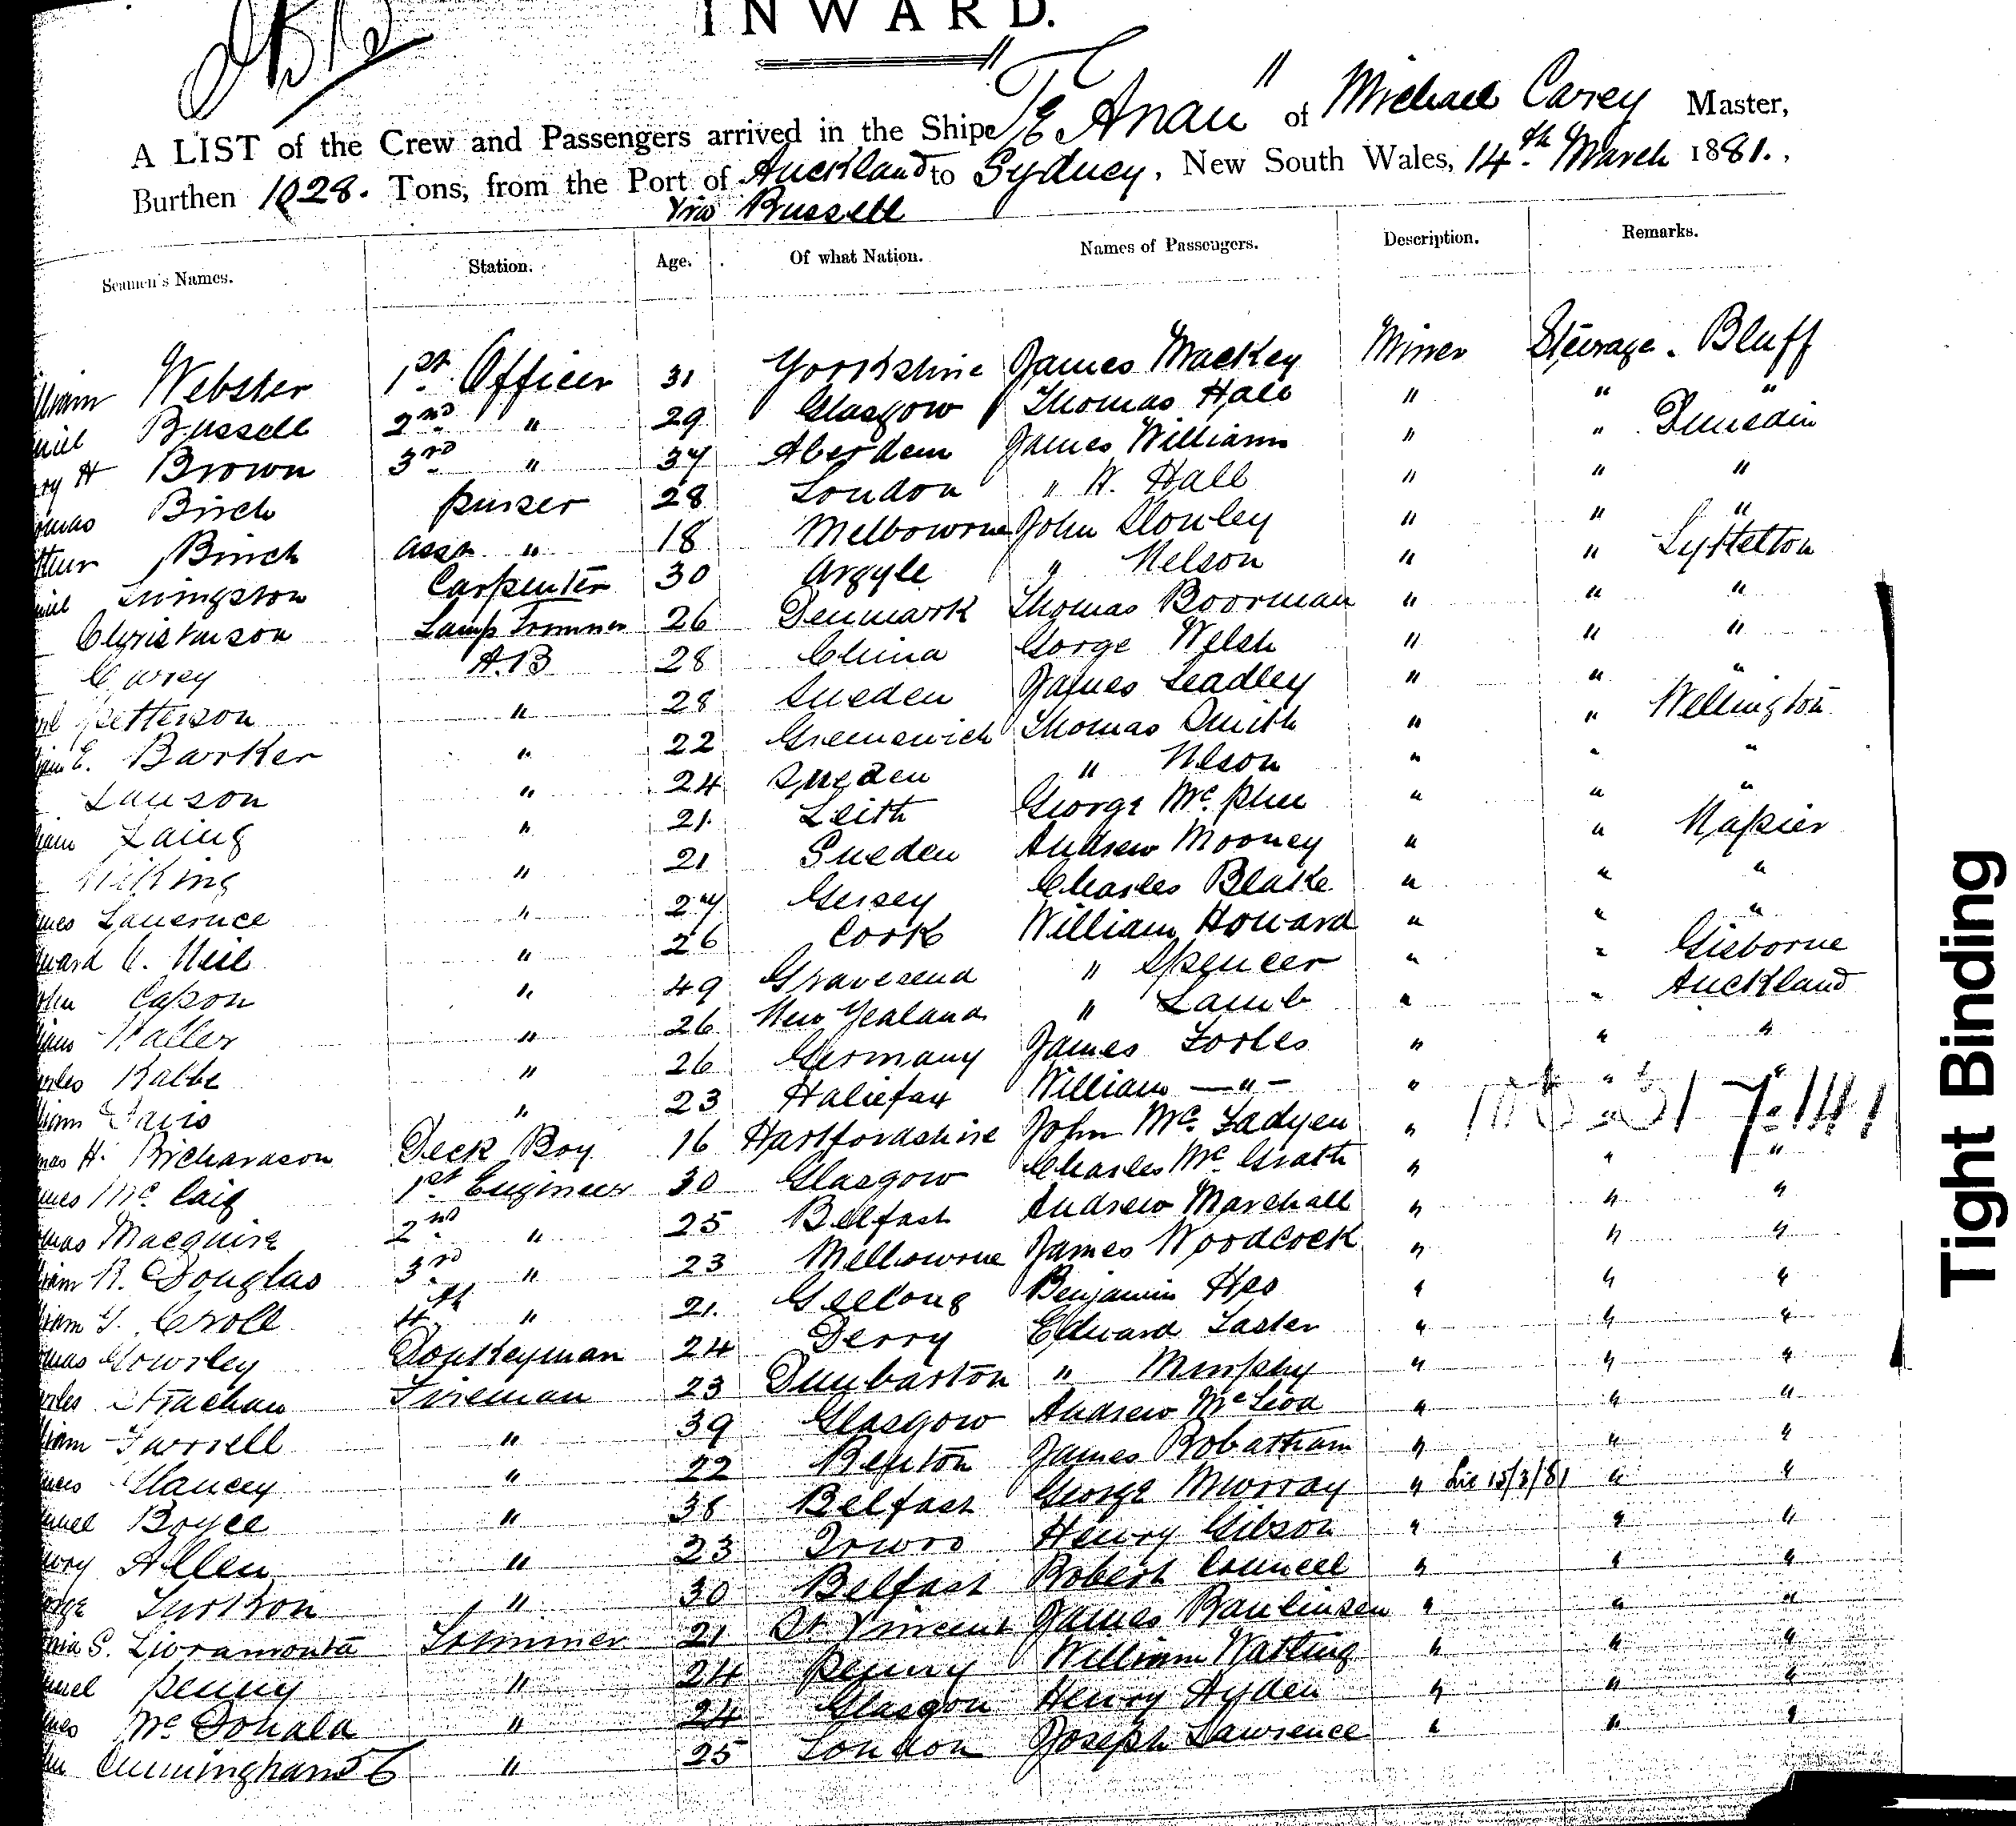 INWARD.
A LIST of the Crew and Passengers arrived in the Ship "Te Anau" of Michael Carey Master,
Burthen 1028. Tons, from the Port of Auckland to Sydney, New South Wales, 14th March 1881.,
Via Russell
Seamen's Names. Station. Age. Of what Nation. Names of Passengers. Description. Remarks.
lliam Webster 1st Officer 31 Yorkshire James Mackey Miner Steerage. Bluff
niel Russell 2nd " 29 Glasgow Thomas Hall " " "
ry H Brown 3rd " 37 Aberdeen James Williams " " Dunedin
omas Birch purser 28 London " W. Hall " " "
thur Birch asst. " 18 Melbourne John " " "
niel Livingston Carpenter 30 Argyle " Nelson " " Lyttelton
Christianson Lamp Trimmer 26 Denmark Thomas Boorman " " "
Carey A.B 28 China Gorge Welsh " " "
rl Petterson " 28 Sueden James Leadley " " "
E. Barker " 22 Greenewich Thomas Smith " " Wellington
Lauson " 24 Sueden " Nelson " " "
liam Laing " 21. Leith George Mc. phee " " "
" 21 Sueden Andrew Mooney " " Napier
mes Lauernce " 27 Gersey Charles Blake " " "
ward O. Neil " 26 Cork William Howard " " "
ohn Capon " 49 Gravesend " Spencer " " Gisborne
Waller " 26 New Zealand " Lamb " " Auckland
arles Rabbe " 26 Germany James Forbes " " "
liam Davis " 23 Haliefax William — " — " " "
mas H. Richardson Deck Boy 16 Hartfordshire John Mc. Fadyen "
mes Mc Caig 1st Engineer 30 Glasgow Charles Mc Grath " " "
omas Macguire 2nd " 25 Belfast Andrew Marshall " " "
liam R. Douglas 3rd " 23 Melbourne James Woodcock " " "
liam G. Croll 4th " 21. Geelong Benjamin " " "
omas Gowrley Donkeyman 24 Derry Edward Laster " " "
arles Strachan Fireman 23 Dumbarton " Murphy " " "
liam Farrell " 39 Glasgow Andrew McLeod " " "
Clancey " 22 James Robatham " " "
muel Boyce " 38 Belfast George Murray " 15/3/81 " "
nry Allen " 23 Henry Gibson " " "
orge " 30 Belfast Robert Councel " " "
S. Livramonta Trimmer 21 St Vincent James Raulinsen " " "
muel penny " 24 penny William Watling " " "
mes Mc Donald " 24 Glasgow Henry Hyden " " "
hn Cunningham 56 " 25 London Joseph Lawrence " " "
Tight Binding